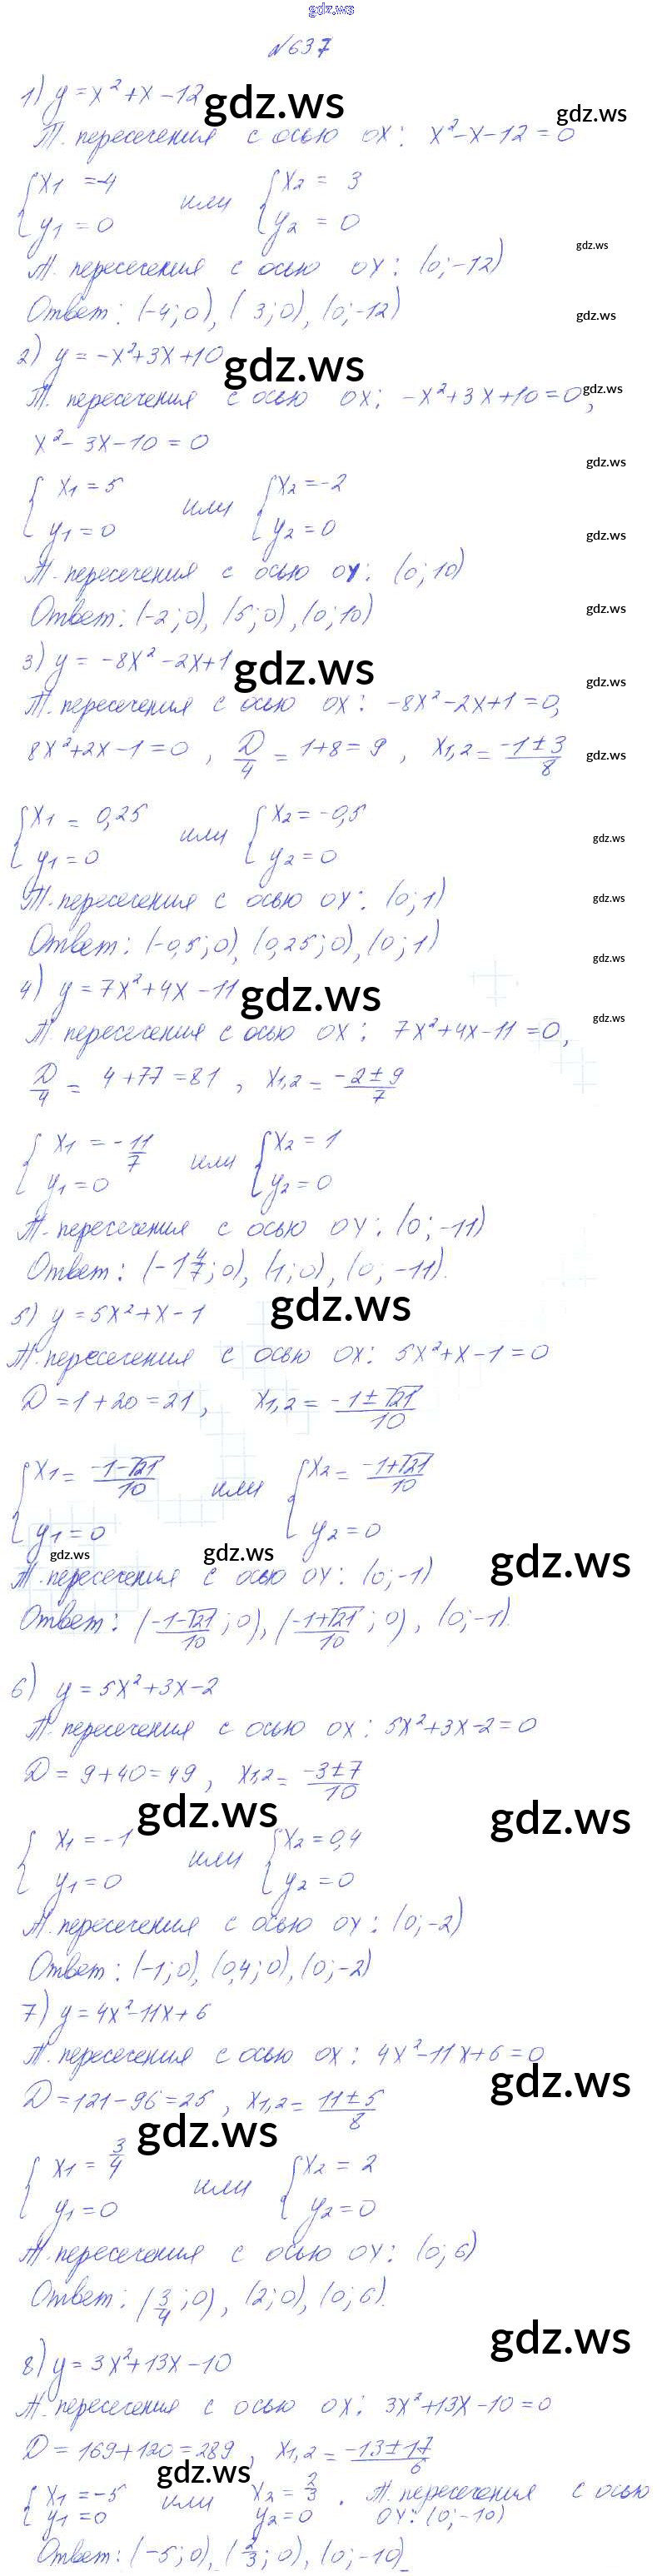 gdz.ws
№637
1) y = x² + x − 12 gdz.ws
Т. пересечения с осью OX: x² − x − 12 = 0 gdz.ws
{x₁ = −4 или {x₂ = 3
{y₁ = 0 {y₂ = 0
gdz.ws
Т. пересечения с осью OY: (0; −12)
Ответ: (−4; 0), (3; 0), (0; −12) gdz.ws
2) y = −x² + 3x + 10 gdz.ws
Т. пересечения с осью OX: −x² + 3x + 10 = 0, gdz.ws
x² − 3x − 10 = 0
gdz.ws
{x₁ = 5 или {x₂ = −2
{y₁ = 0 {y₂ = 0
gdz.ws
Т. пересечения с осью OY: (0; 10)
Ответ: (−2; 0), (5; 0), (0; 10) gdz.ws
3) y = −8x² − 2x + 1 gdz.ws
gdz.ws
Т. пересечения с осью OX: −8x² − 2x + 1 = 0,
8x² + 2x − 1 = 0, D/4 = 1 + 8 = 9, x₁,₂ = (−1 ± 3)/8 gdz.ws
{x₁ = 0,25 или {x₂ = −0,5
{y₁ = 0 {y₂ = 0
gdz.ws
Т. пересечения с осью OY: (0; 1) gdz.ws
Ответ: (−0,5; 0), (0,25; 0), (0; 1) gdz.ws
4) y = 7x² + 4x − 11 gdz.ws
gdz.ws
Т. пересечения с осью OX: 7x² + 4x − 11 = 0,
D/4 = 4 + 77 = 81, x₁,₂ = (−2 ± 9)/7
{x₁ = −11/7 или {x₂ = 1
{y₁ = 0 {y₂ = 0
Т. пересечения с осью OY: (0; −11)
Ответ: (−1 4/7; 0), (1; 0), (0; −11).
5) y = 5x² + x − 1 gdz.ws
Т. пересечения с осью OX: 5x² + x − 1 = 0
D = 1 + 20 = 21, x₁,₂ = (−1 ± √21)/10
{x₁ = (−1 − √21)/10 или {x₂ = (−1 + √21)/10
{y₁ = 0 {y₂ = 0
gdz.ws gdz.ws gdz.ws
Т. пересечения с осью OY: (0; −1)
Ответ: ((−1 − √21)/10; 0), ((−1 + √21)/10; 0), (0; −1).
6) y = 5x² + 3x − 2
Т. пересечения с осью OX: 5x² + 3x − 2 = 0
D = 9 + 40 = 49, x₁,₂ = (−3 ± 7)/10
gdz.ws gdz.ws
{x₁ = −1 или {x₂ = 0,4
{y₁ = 0 {y₂ = 0
Т. пересечения с осью OY: (0; −2)
Ответ: (−1; 0), (0,4; 0), (0; −2)
7) y = 4x² − 11x + 6
Т. пересечения с осью OX: 4x² − 11x + 6 = 0
gdz.ws
D = 121 − 96 = 25, x₁,₂ = (11 ± 5)/8
gdz.ws
{x₁ = 3/4 или {x₂ = 2
{y₁ = 0 {y₂ = 0
Т. пересечения с осью OY: (0; 6)
Ответ: (3/4; 0), (2; 0), (0; 6).
gdz.ws
8) y = 3x² + 13x − 10
Т. пересечения с осью OX: 3x² + 13x − 10 = 0
D = 169 + 120 = 289, x₁,₂ = (−13 ± 17)/6
gdz.ws
{x₁ = −5 или x₂ = 2/3. Т. пересечения с осью
{y₁ = 0 y₂ = 0 OY: (0; −10)
Ответ: (−5; 0), (2/3; 0), (0; −10)